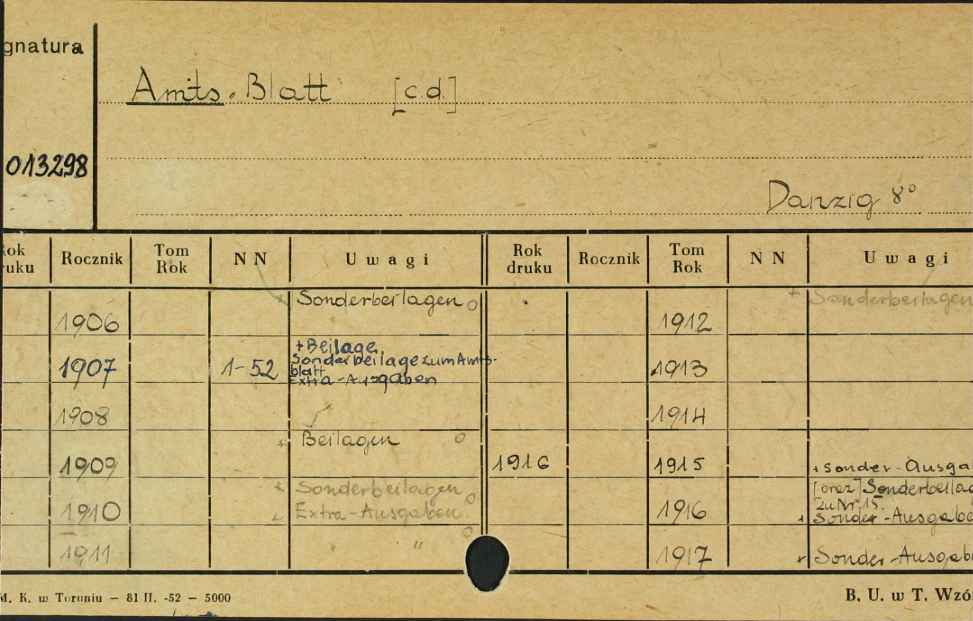 gnatura
Amts-Blatt [c.d.]
013298
Danzig 8°
Rok druku Rocznik Tom Rok NN Uwagi Rok druku Rocznik Tom Rok NN Uwagi
1906 + Sonderbeilagen 1912 + Sonderbeilagen
1907 1-52 +Beilage
Sonderbeilage zum Amts-
blatt
Extra-Ausgaben 1913
1908 1914
1909 + Beilagen 1916 1915 + Sonder-Ausga
1910 + Sonderbeilagen
Extra-Ausgaben 1916 [oraz] Sonderbeilag
zu Nr 15.
+ Sonder-Ausgabe
1911 " 1917 + Sonder-Ausgab
M. K. w Toruniu — 81 II. -52 — 5000
B. U. w T. Wzó